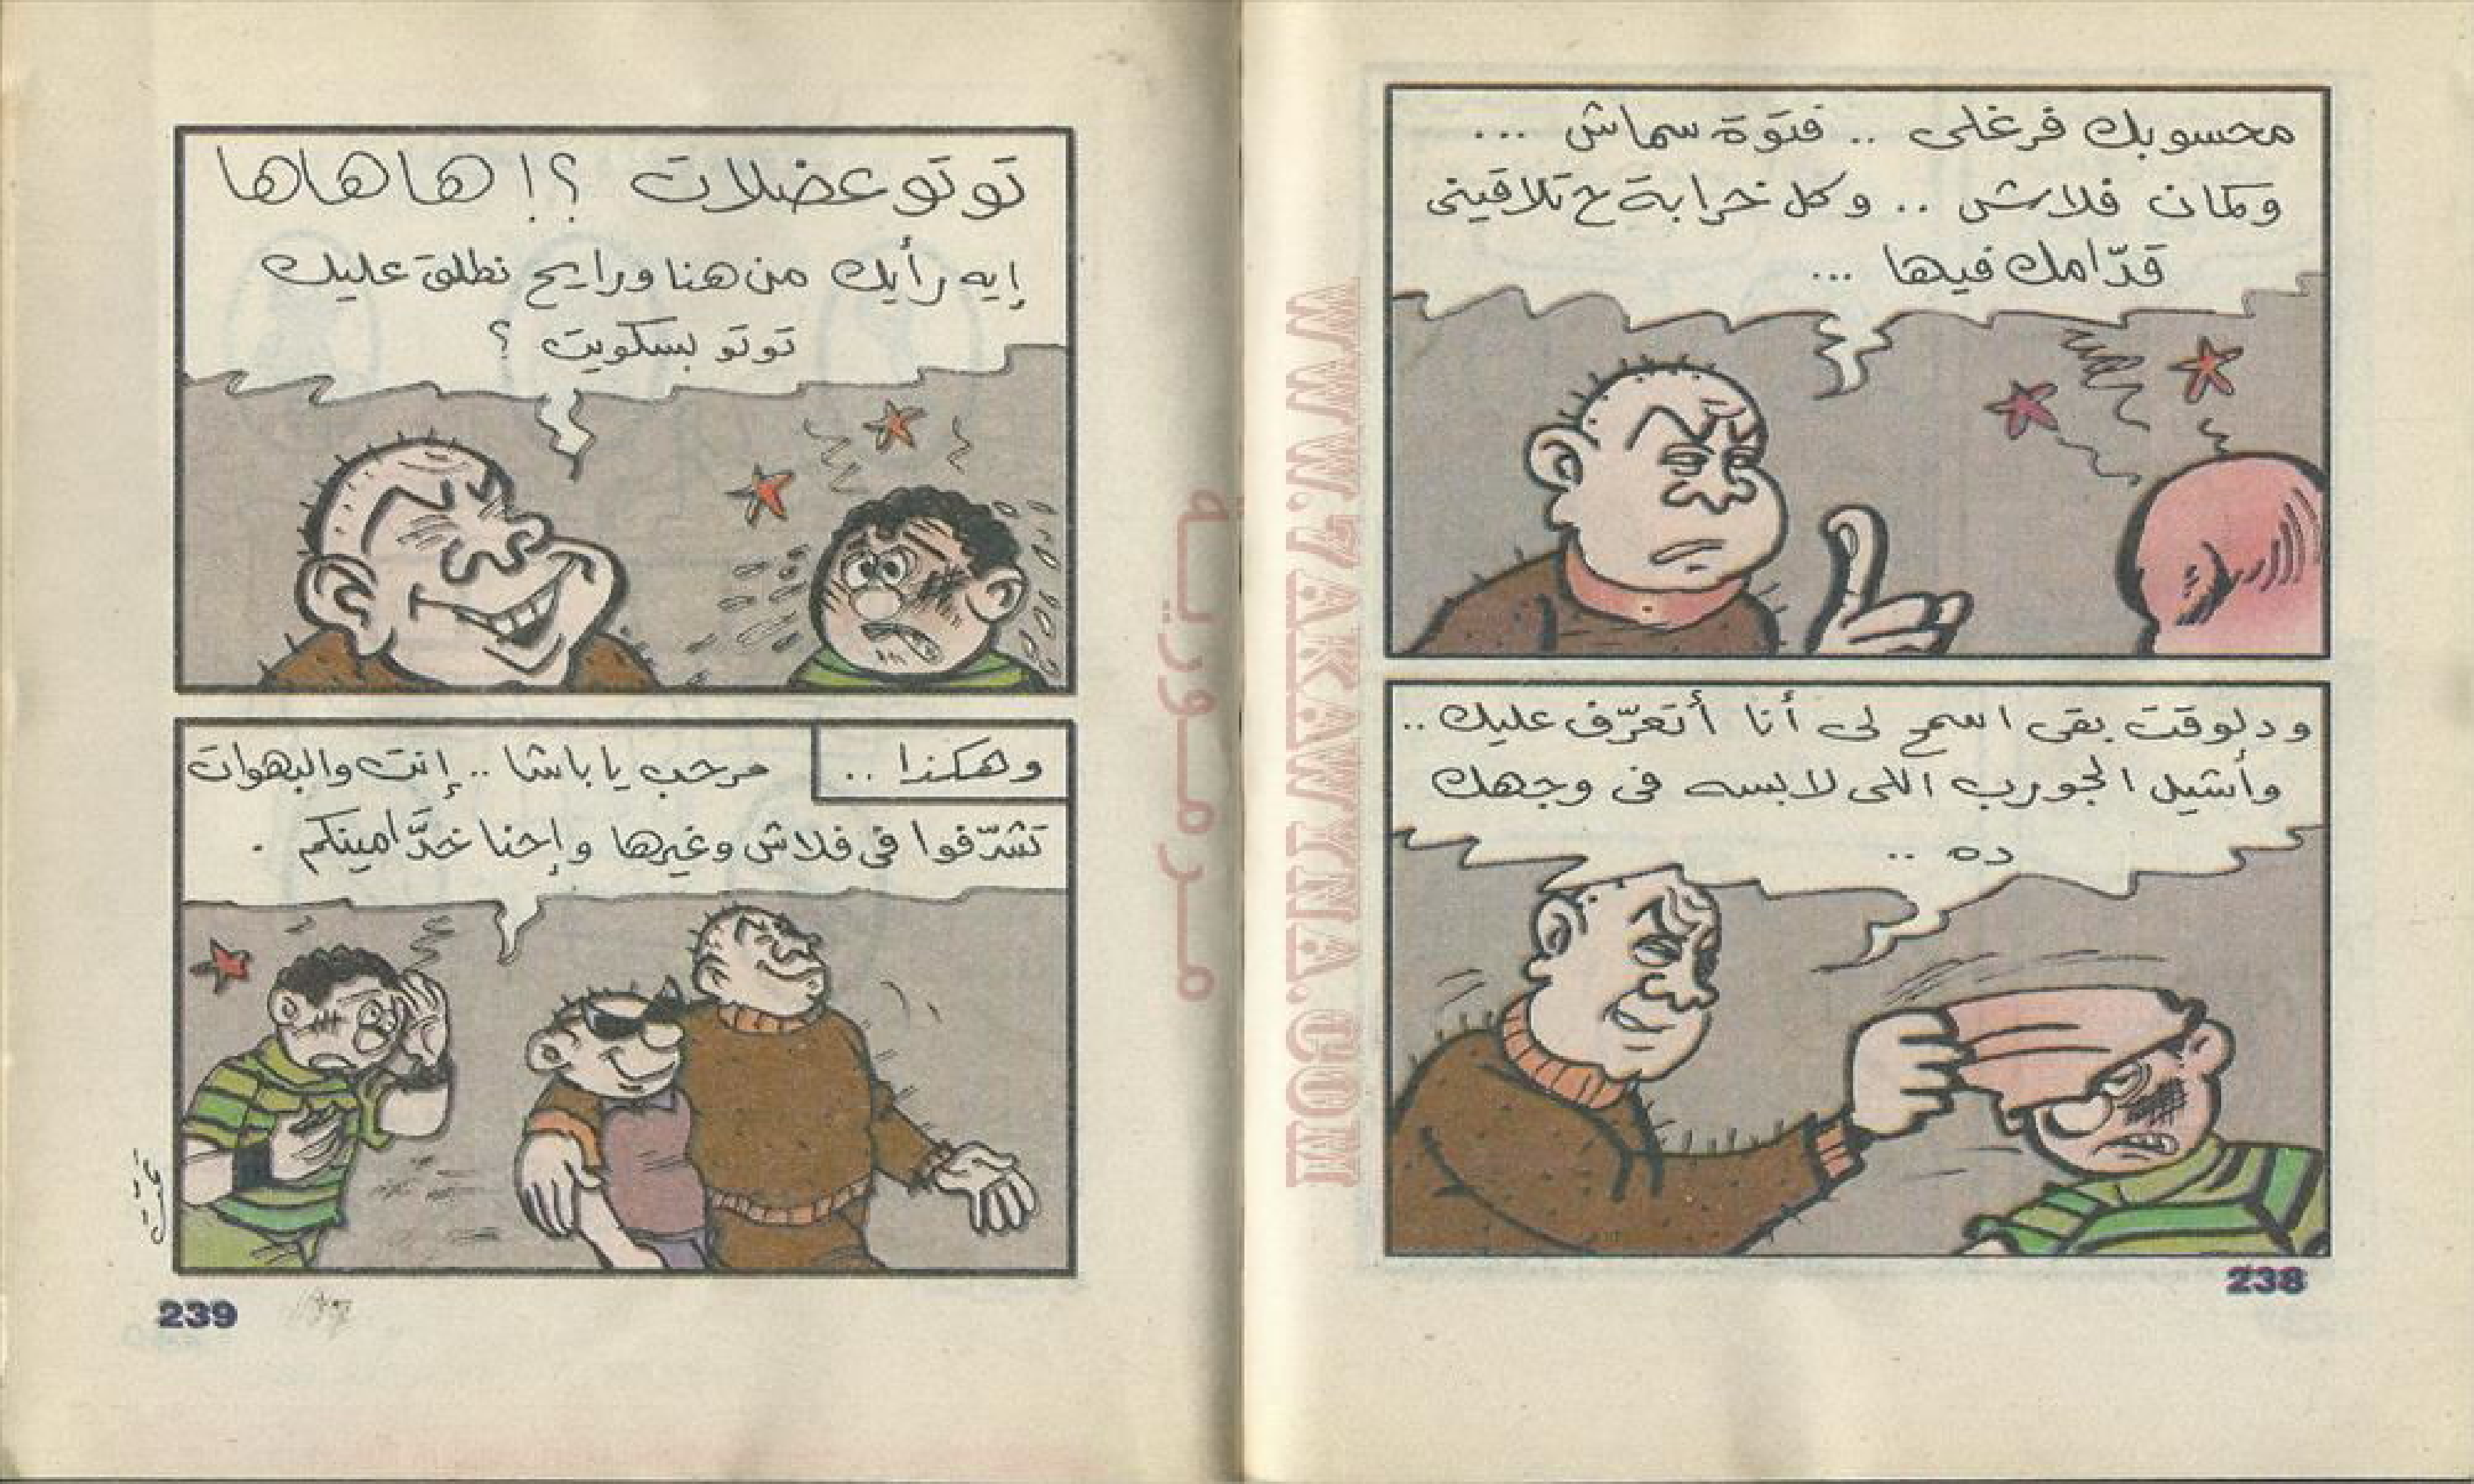 محسوبك فرغلى .. فتوّة سماش ...
وكمان فلاش .. وكل خرابة ح تلاقينى
قدّامك فيها ...
ودلوقت بقى اسمح لى أنا أتعرّف عليك ..
وأشيل الجورب اللى لابسه فى وجهك
ده ..
238
توتو عضلات ؟! هاهاها
إيه رأيك من هنا ورايح نطلق عليك
توتو بسكويت ؟
وهكذا ..
مرحب يا باشا .. إنت والبهوات
تشرّفوا فى فلاش وغيرها وإحنا خدَّامينكم .
239
WWW.7AKAWYNA.COM
مرمورية